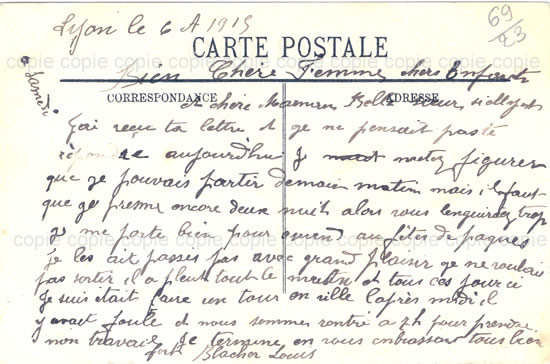 Lyon le 6 A 1915
69
23
CARTE POSTALE
Samedi
Bien Chère Femme chers Enfants
CORRESPONDANCE
ADRESSE
et chère Maman Belle sœur
J'ai reçu ta lettre et ge ne pensait pas te
répondre aujourdhui Je metez figurer
que ge pouvais partir demain matin mais il faut
que ge prenne encore deux nuit alors vous languirez trop
ge me porte bien pour quend au fites de paques
je les ait passes pas avec grand plaiser ge ne voulait
pas sortir il a pleut tout le matin et tous ces jour ci
Je suis était faire un tour en ville laprès midi il
y avait foule et nous sommes rontré a 2h pour prendre
mon travail Je termine en vous embrassant tous bien
fort Blachor Louis
copie copie copie copie copie copie copie